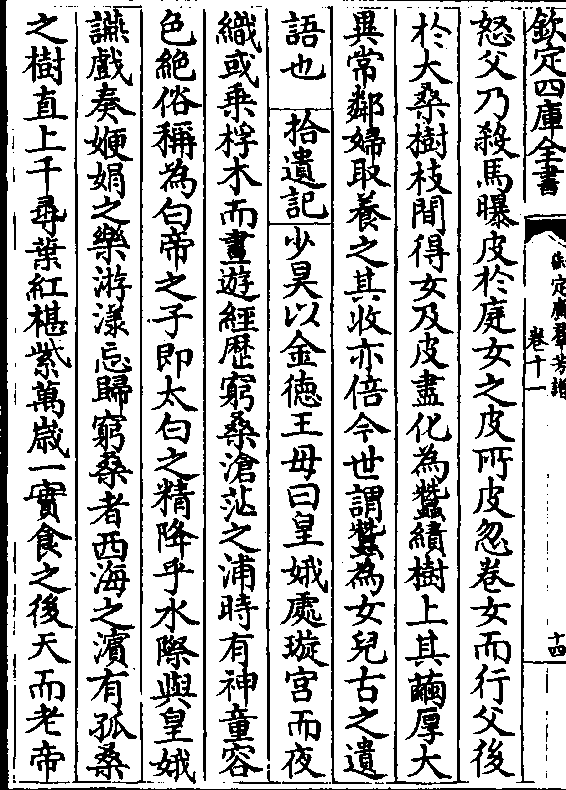 欽定四庫全書
卷十一
十四
怒父乃殺馬曝皮於庭女之皮所皮忽卷女而行父後
於大桑樹枝間得女及皮盡化為蠶績樹上其繭厚大
異常鄰婦取養之其收亦倍今世謂蠶為女兒古之遺
語也 拾遺記 少昊以金徳王母曰皇娥處璇宫而夜
織或乗桴木而晝遊經歴窮桑滄茫之浦時有神童容
色絶俗稱為白帝之子即太白之精降乎水際與皇娥
讌戲奏㛹娟之樂游漾忘歸窮桑者西海之濱有孤桑
之樹直上千尋葉紅椹紫萬歳一實食之後天而老帝